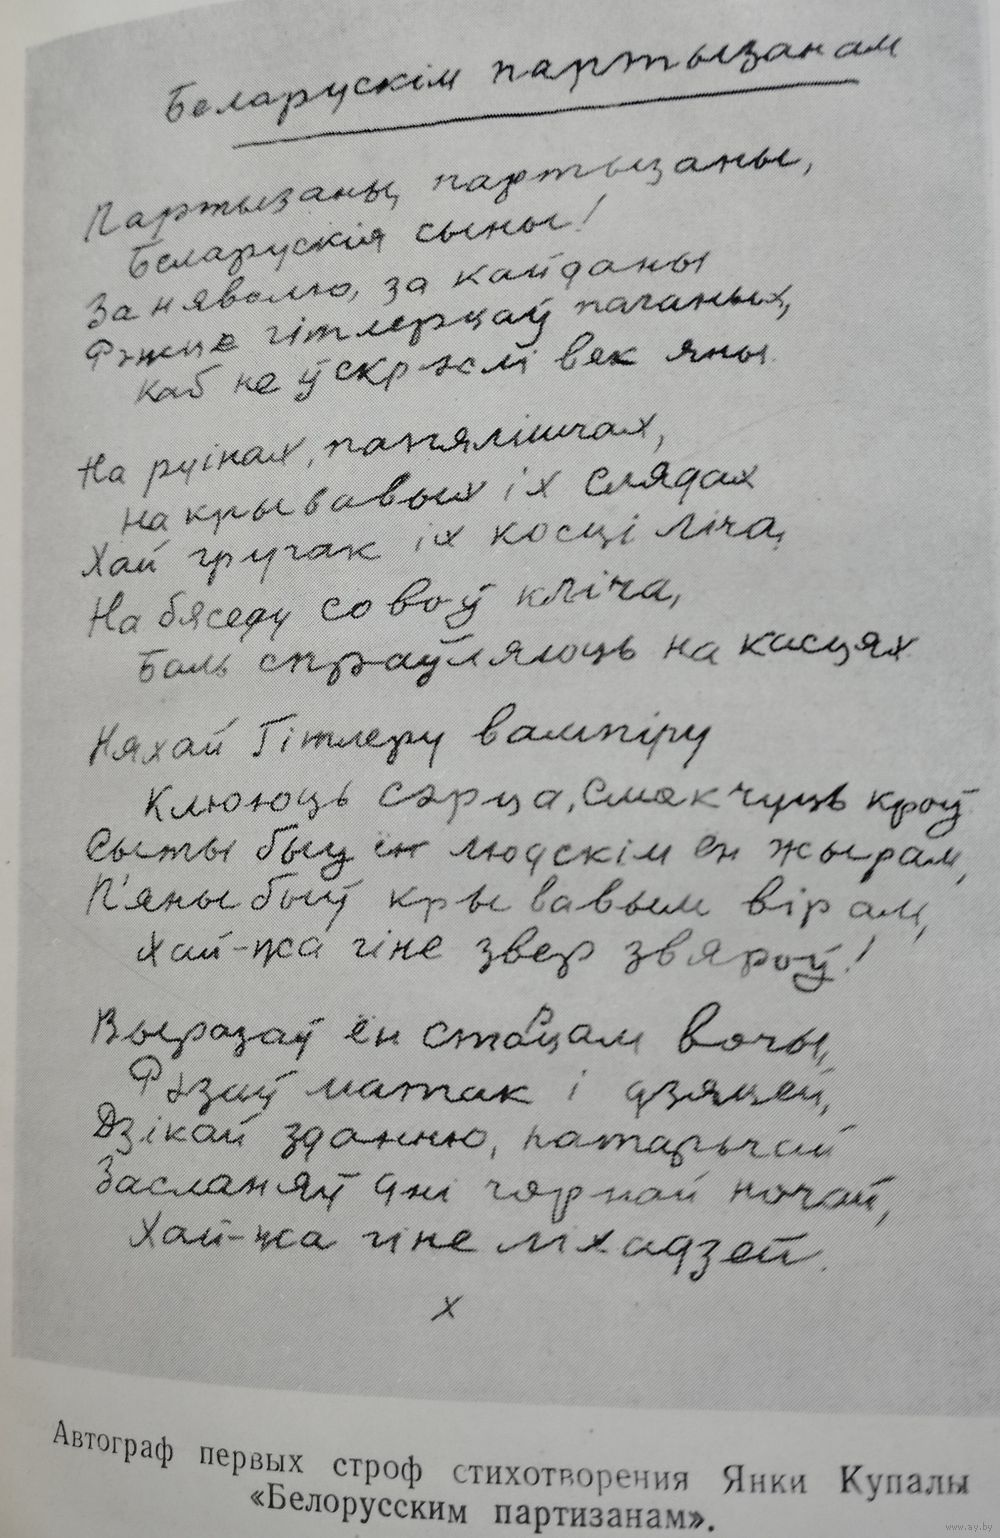 Беларускім партызанам
Партызаны, партызаны,
Беларускія сыны!
За няволю, за кайданы
Рэжце гітлерцаў паганых,
Каб не ўскрэслі век яны.
На руінах, папялішчах,
На крывавых іх слядах
Хай груган іх косці ліча,
На бяседу соваў кліча,
Баль спраўляюць на касцях.
Няхай Гітлеру вампіру
Клююць сэрца, смокчуць кроў
Сыты быў ён людскім ён жырам,
П'яны быў крывавым вірам,
Хай-жа гіне звер звяроў!
Выразаў ён старцам вочы,
Рэзаў матак і дзяцей,
Дзікай зданню,
Засланяў дні чорнай ночай,
Хай-жа гіне ліхадзей.
х
Автограф первых строф стихотворения Янки Купалы
«Белорусским партизанам».
www.ay.by